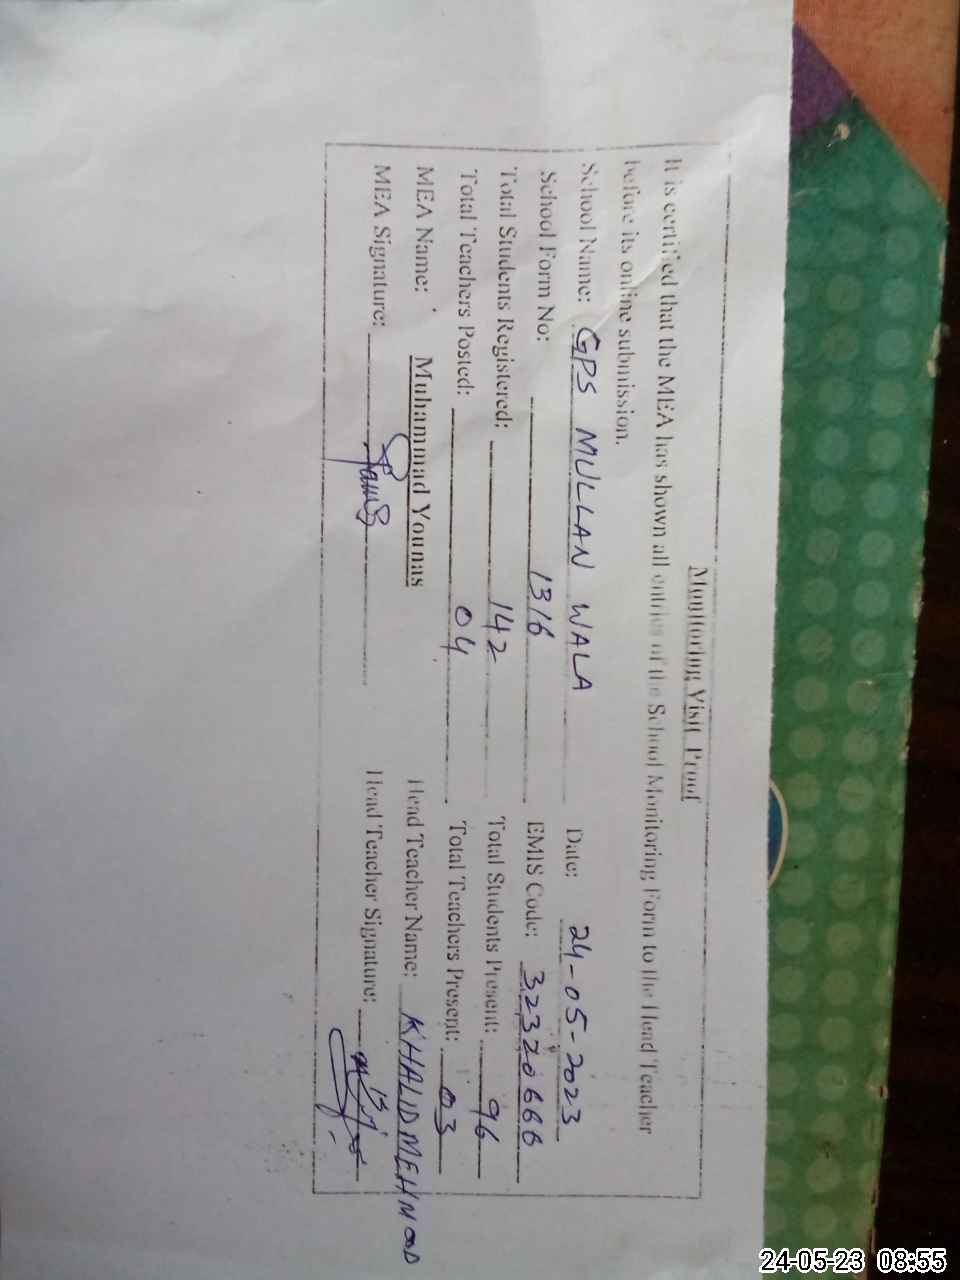 Monitoring Visit Proof
It is certified that the MEA has shown all entries of the School Monitoring Form to the Head Teacher
before its online submission.
School Name: GPS MULLAN WALA Date: 24-05-2023
School Form No: 1316 EMIS Code: 32320666
Total Students Registered: 142 Total Students Present: 96
Total Teachers Posted: 04 Total Teachers Present: 03
MEA Name: Muhammad Younas Head Teacher Name: KHALID MEHMOOD
MEA Signature: Head Teacher Signature:
24-05-23 08:55